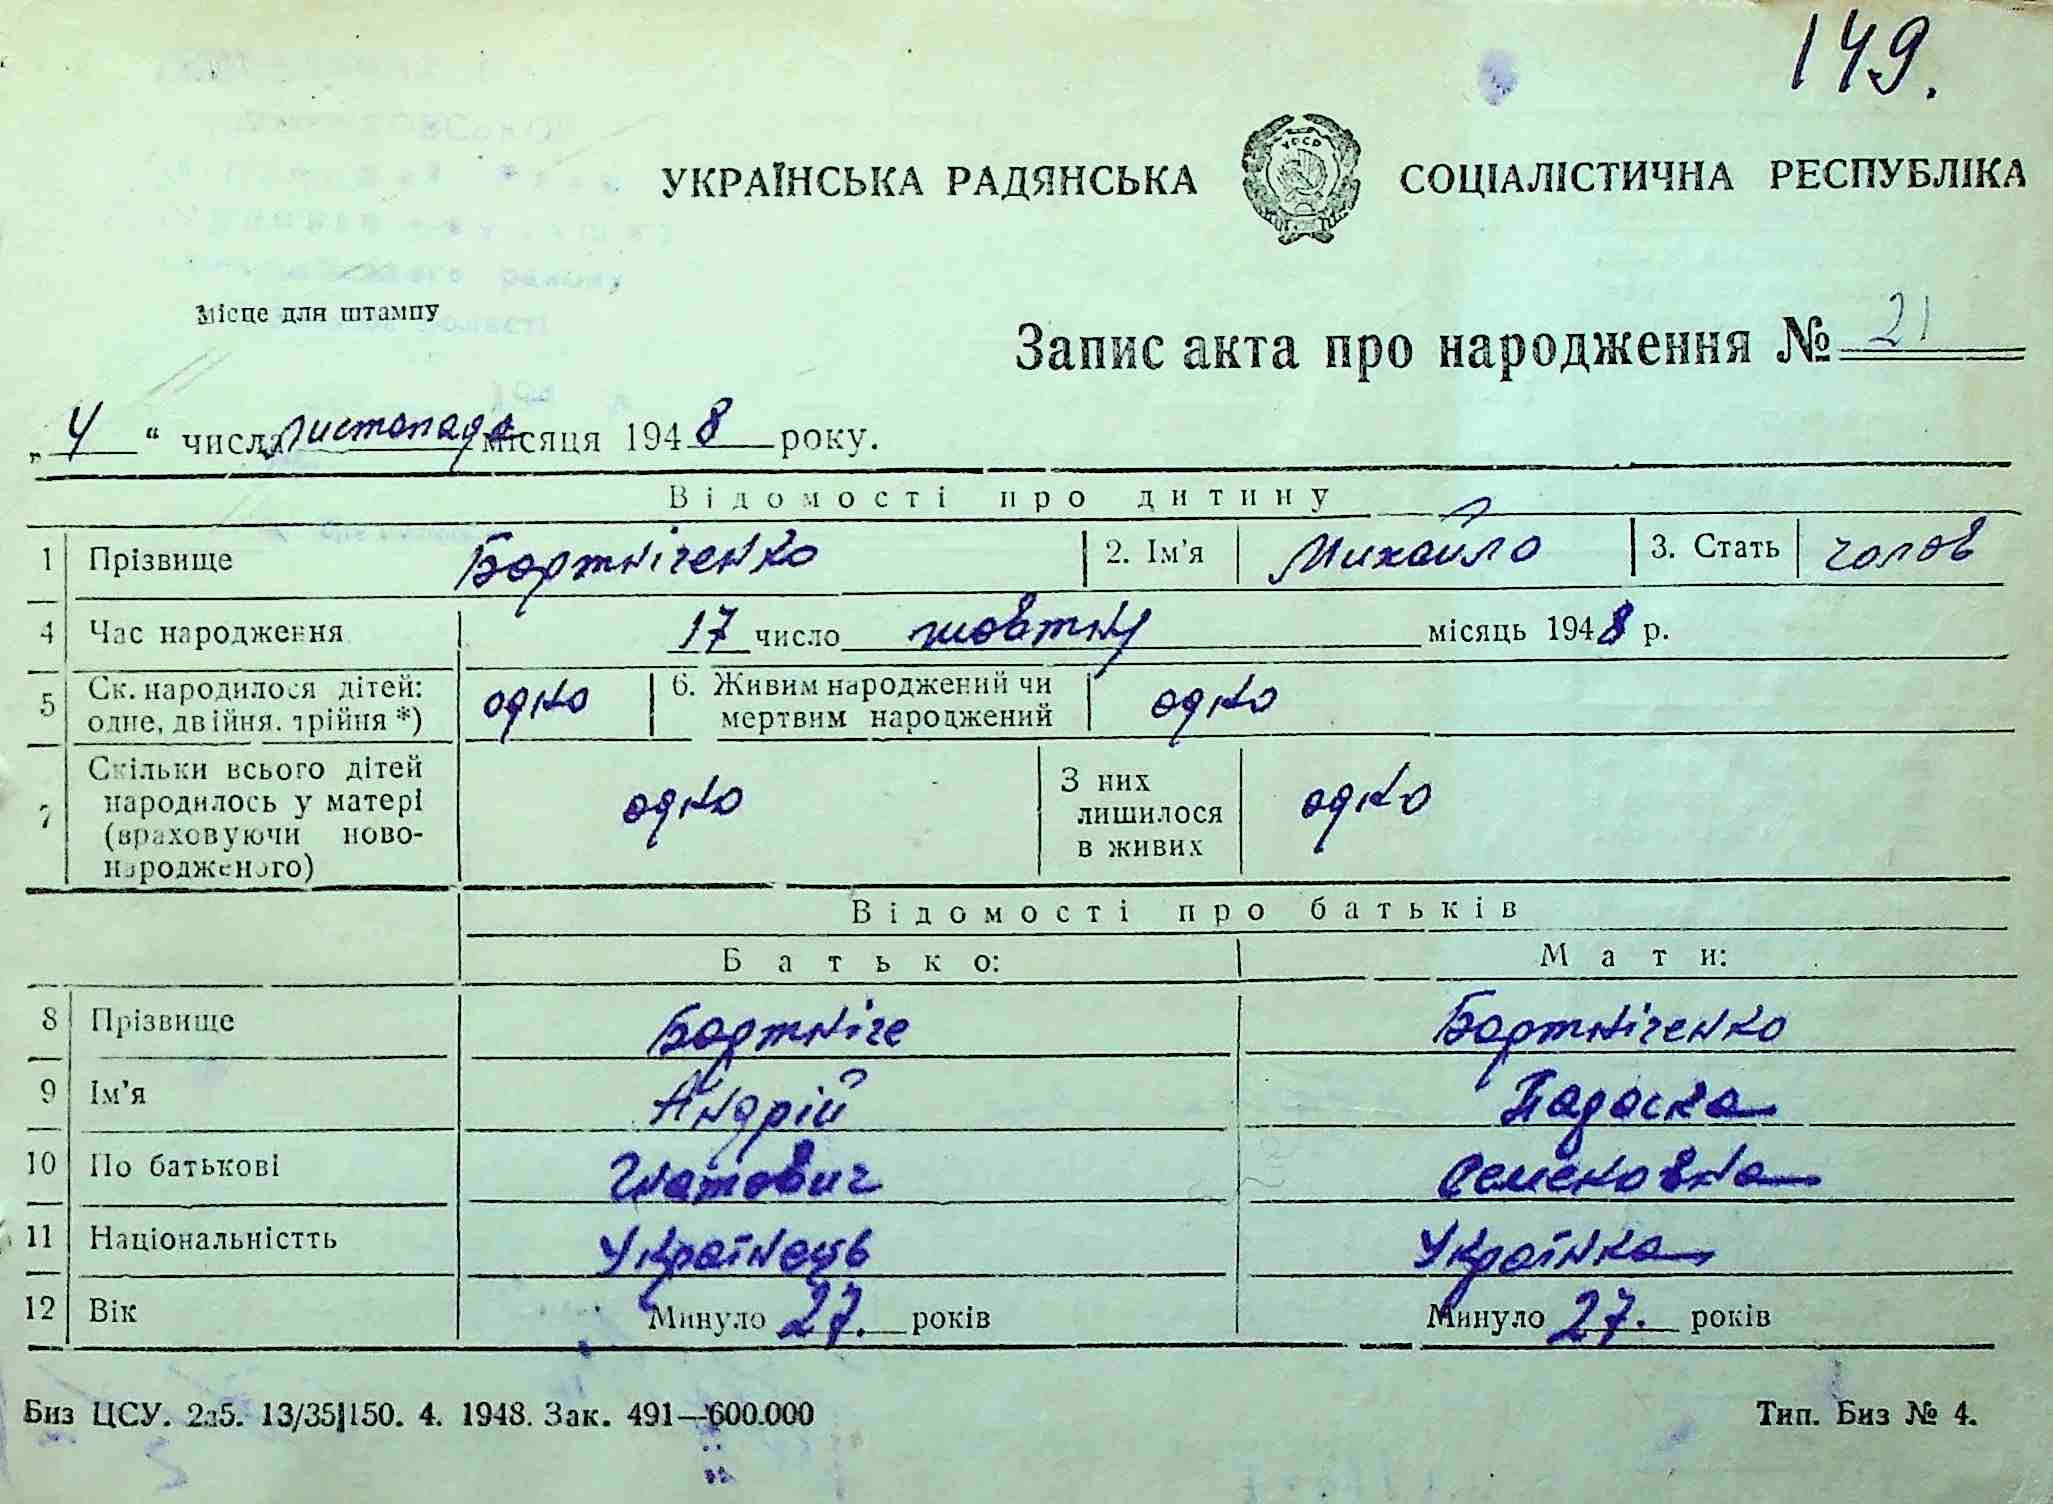 149.
УКРАЇНСЬКА РАДЯНСЬКА СОЦІАЛІСТИЧНА РЕСПУБЛІКА
УССР
Місце для штампу
Запис акта про народження № 21
„4“ числа листопада місяця 1948 року.
Відомості про дитину
1 Прізвище Бортніченко 2. Ім'я Михайло 3. Стать чолов
4 Час народження 17 число жовтня місяць 1948 р.
5 Ск. народилося дітей: одно 6. Живим народжений чи одно
одне, двійня. трійня *) мертвим народжений
7 Скільки всього дітей
народилось у матері одно З них одно
(враховуючи ново- лишилося
народженого) в живих
Відомості про батьків
Батько: Мати:
8 Прізвище Бортніче Бортніченко
9 Ім'я Андрій
10 По батькові Гнатович Семеновна
11 Національністть Українець Українка
12 Вік Минуло 27. років Минуло 27. років
Биз ЦСУ. 2а5. 13/35|150. 4. 1948. Зак. 491—600.000 Тип. Биз № 4.